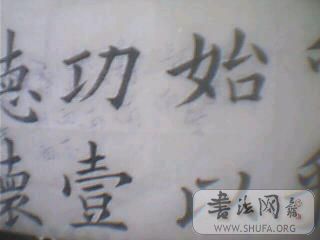 始以
功壹
德懷
書法网
WWW.SHUFA.ORG